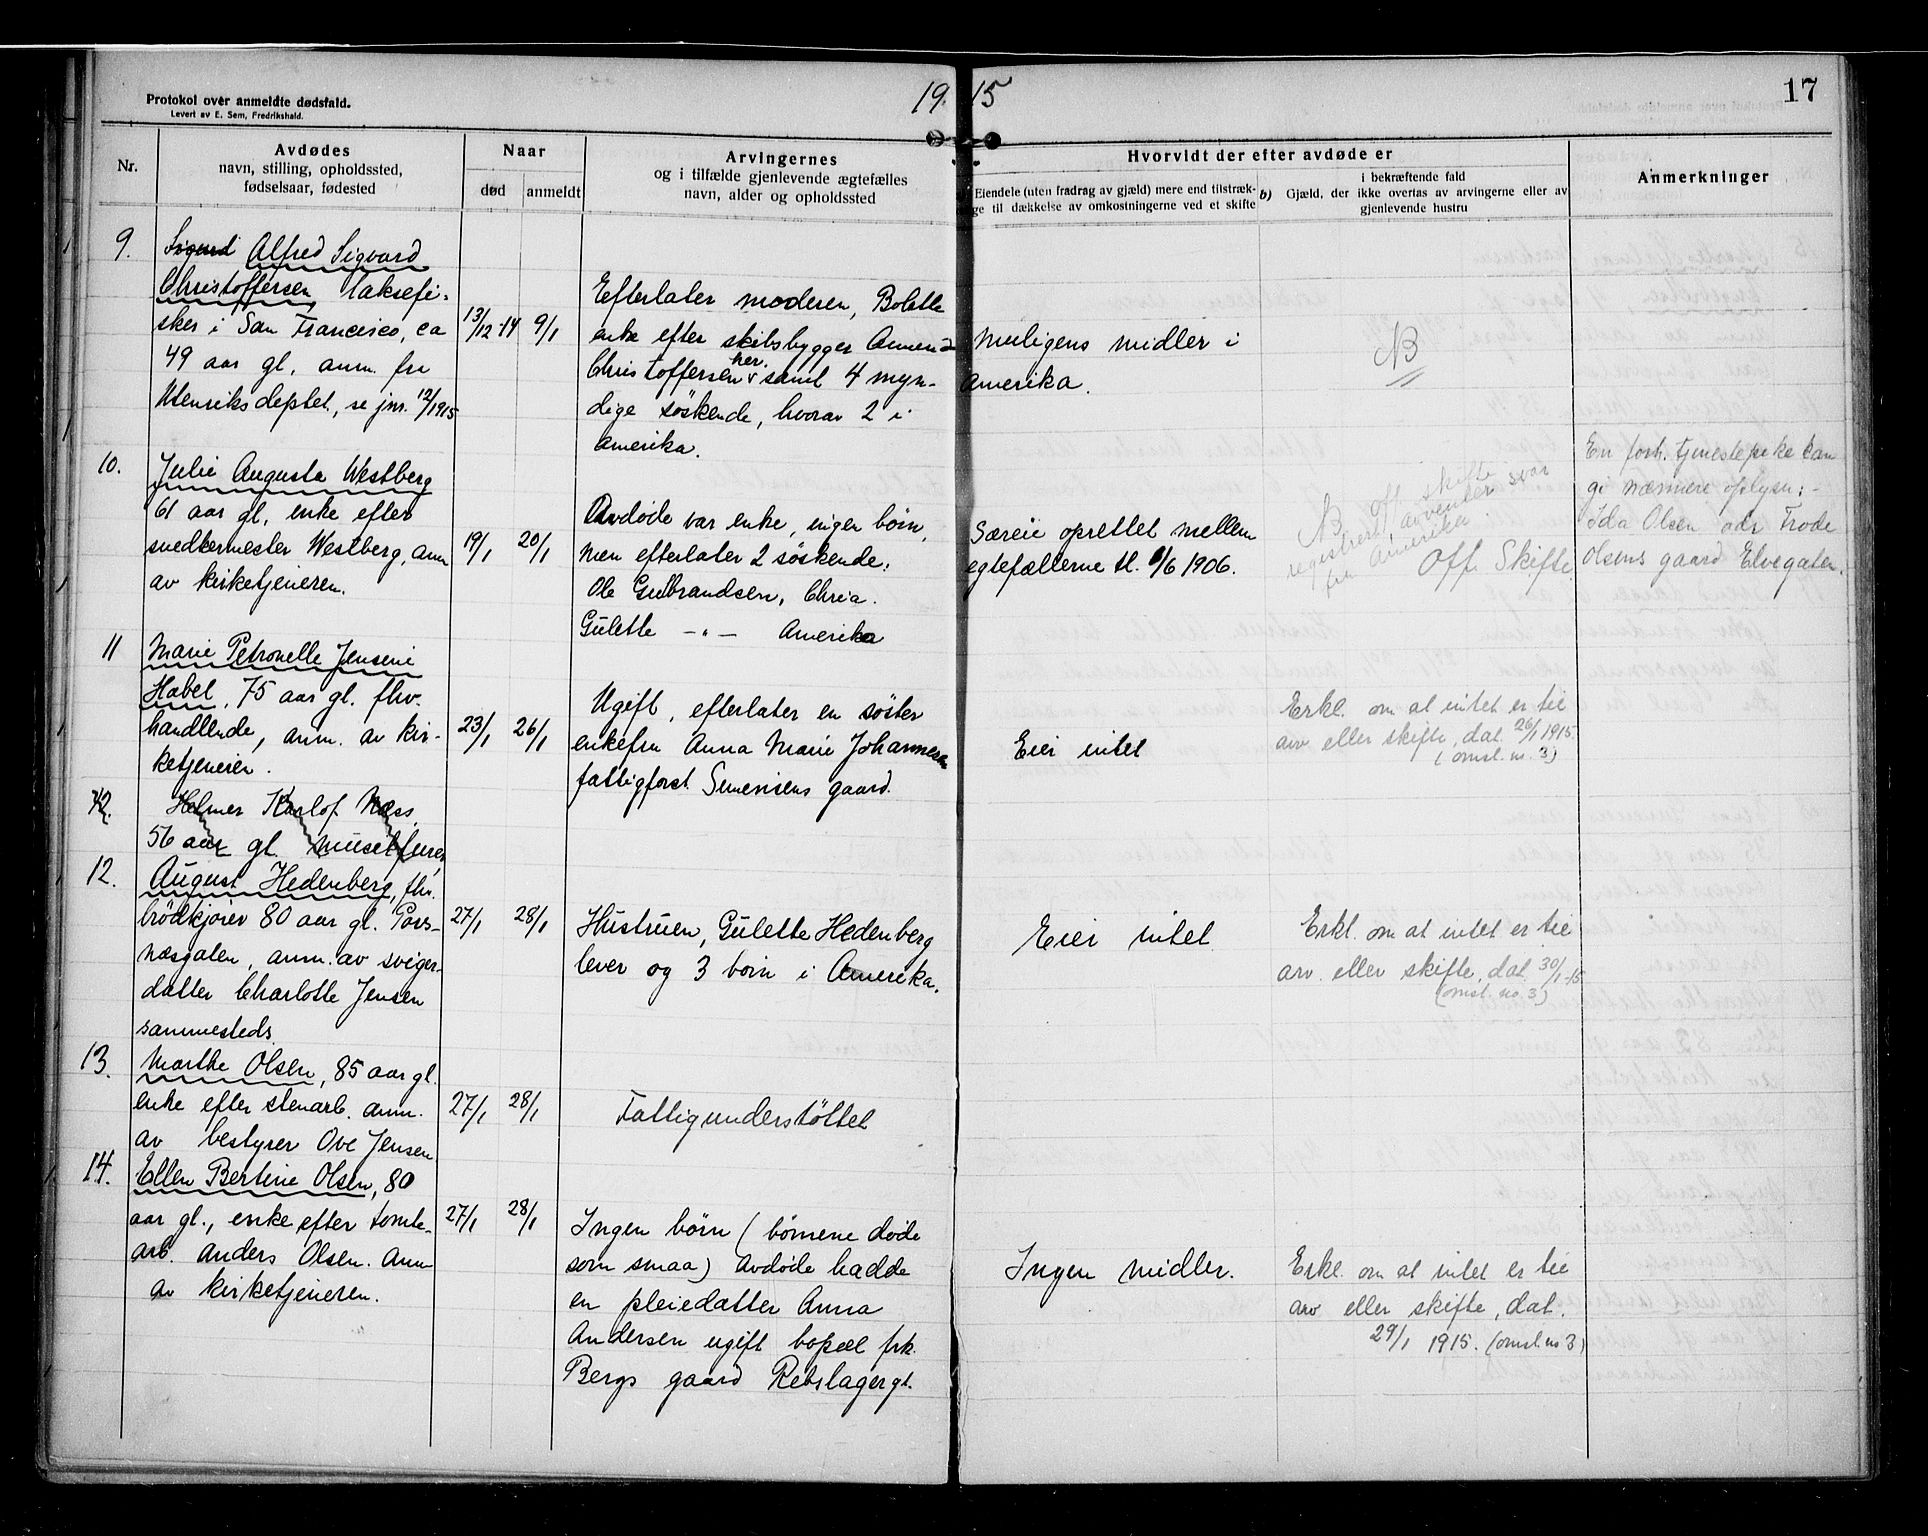 Protokol over anmeldte dødsfald.
Levert av E. Sem, Fredrikshald.
1915
17
Nr.
Avdødes
navn, stilling, opholdssted,
fødselsaar, fødested
Naar
død
anmeldt
Arvingernes
og i tilfælde gjenlevende ægtefælles
navn, alder og opholdssted
Hvorvidt der efter avdøde er
Eiendele (uten fradrag av gjæld) mere end tilstræk-
ge til dækkelse av omkostningerne ved et skifte
b)
i bekræftende fald
Gjæld, der ikke overtas av arvingerne eller av
gjenlevende hustru
Anmerkninger
9.
Sigurd Alfred Sigvard
Christoffersen, laksefi-
sker i San Francisco, ca
49 aar gl, anm. fra
Utenriksdeptet, se jnr. 12/1915
13/12-14
9/1
Efterlater moderen, Bolette
enke efter skibsbygger
Christoffersen her. samt 4 myn-
dige søskende, hvorav 2 i
Amerika.
Muligens midler i
Amerika.
NB
10.
Julie Augusta Westberg
61 aar gl, enke efter
snedkermester Westberg, anm
av kirketjeneren.
19/1
20/1
Avdøde var enke, ingen børn,
men efterlater 2 søskende:
Ole Gulbrandsen, Chria.
Gulette -"- Amerika
Særeie oprettet mellem
egtefællerne tl. 6/6 1906.
NB off. skifte
registrert avventer svar
fra Amerika.
Off. Skifte.
En forh. tjenestepike kan
gi nærmere oplysn: -
Ida Olsen adr Frode
Olsens gaard Elvegaten.
11
Marie Petronelle Jensine
Habel, 75 aar gl. fhv.
handlende, anm. av kir-
ketjener.
23/1
26/1
Ugift, efterlater en søster
enkefru Anna Marie Johannesen
fattigforst. Simensens gaard.
Eier intet
Erkl. om at intet er til
arv eller skifte, dat. 26/1 1915.
(omst. no. 3)
12.
Helmer Karlof Næss,
56 aar gl.
12.
August Hedenberg, fhv.
brødkjører 80 aar gl. Pors-
næsgaten, anm. av sviger-
datter Charlotte Jensen
sammesteds.
27/1
28/1
Hustruen, Gulette Hedenberg
lever og 3 børn i Amerika.
Eier intet
Erkl. om at intet er til
arv eller skifte, dat. 30/1-15
(omst. no. 3)
13.
Marthe Olsen, 85 aar gl.
enke efter stenarb. anm.
av bestyrer Ove Jensen
27/1
28/1
Fattigunderstøttet
14.
Ellen Bertine Olsen, 80
aar gl., enke efter tomte-
arb. Anders Olsen. Anm
av kirketjeneren.
27/1
28/1
Ingen børn (børnene døde
som smaa) Avdøde hadde
en pleiedatter Anna
Andersen ugift bopæl frk.
Bergs gaard Rebslagergt.
Ingen midler.
Erkl. om at intet er til
arv eller skifte, dat.
29/1 1915. (omst. no 3)